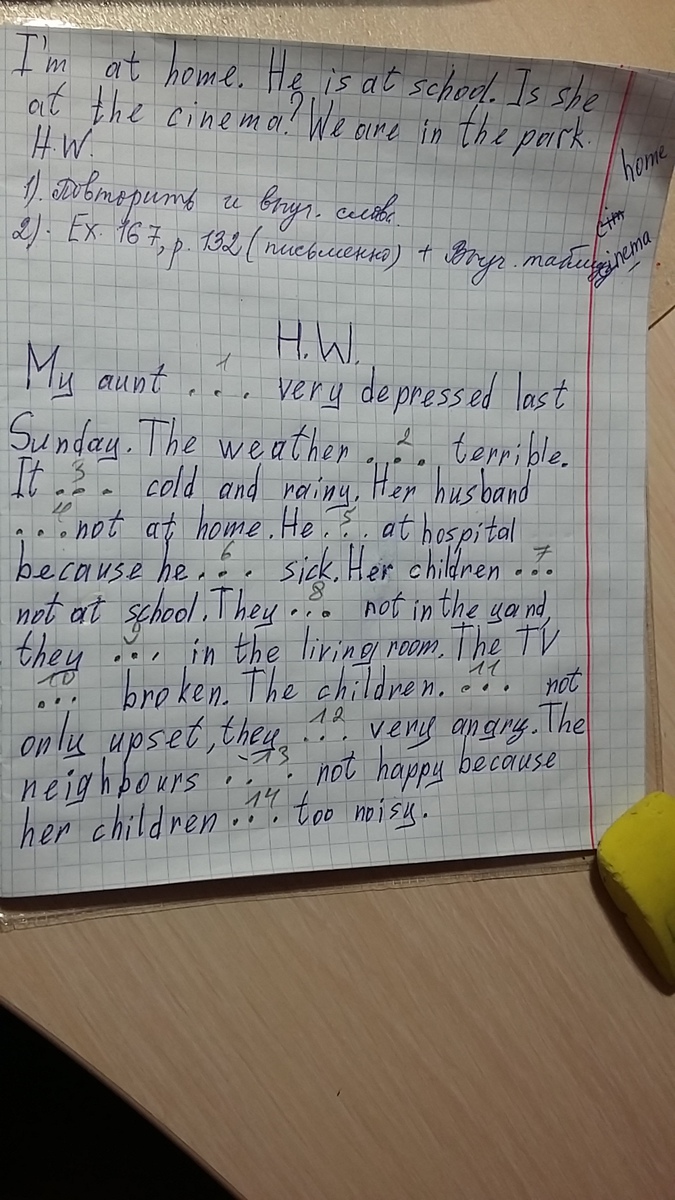 I'm at home. He is at school. Is she
at the cinema? We are in the park.
H.W.
home
1). Повторить и выуч. слова.
cin
2). Ex. 167, p. 132 (письменно) + Выуч. таблицу
cinema
H.W.
My aunt .1.. very depressed last
Sunday. The weather .2.. terrible.
It .3.. cold and rainy. Her husband
..4. not at home. He .5.. at hospital
because he .6.. sick. Her children ..7.
not at school. They .8.. not in the yand,
they .9.. in the living room. The TV
.10.. broken. The children. .11.. not
only upset, they .12.. very angry. The
neighbours .13.. not happy because
her children .14.. too noisy.